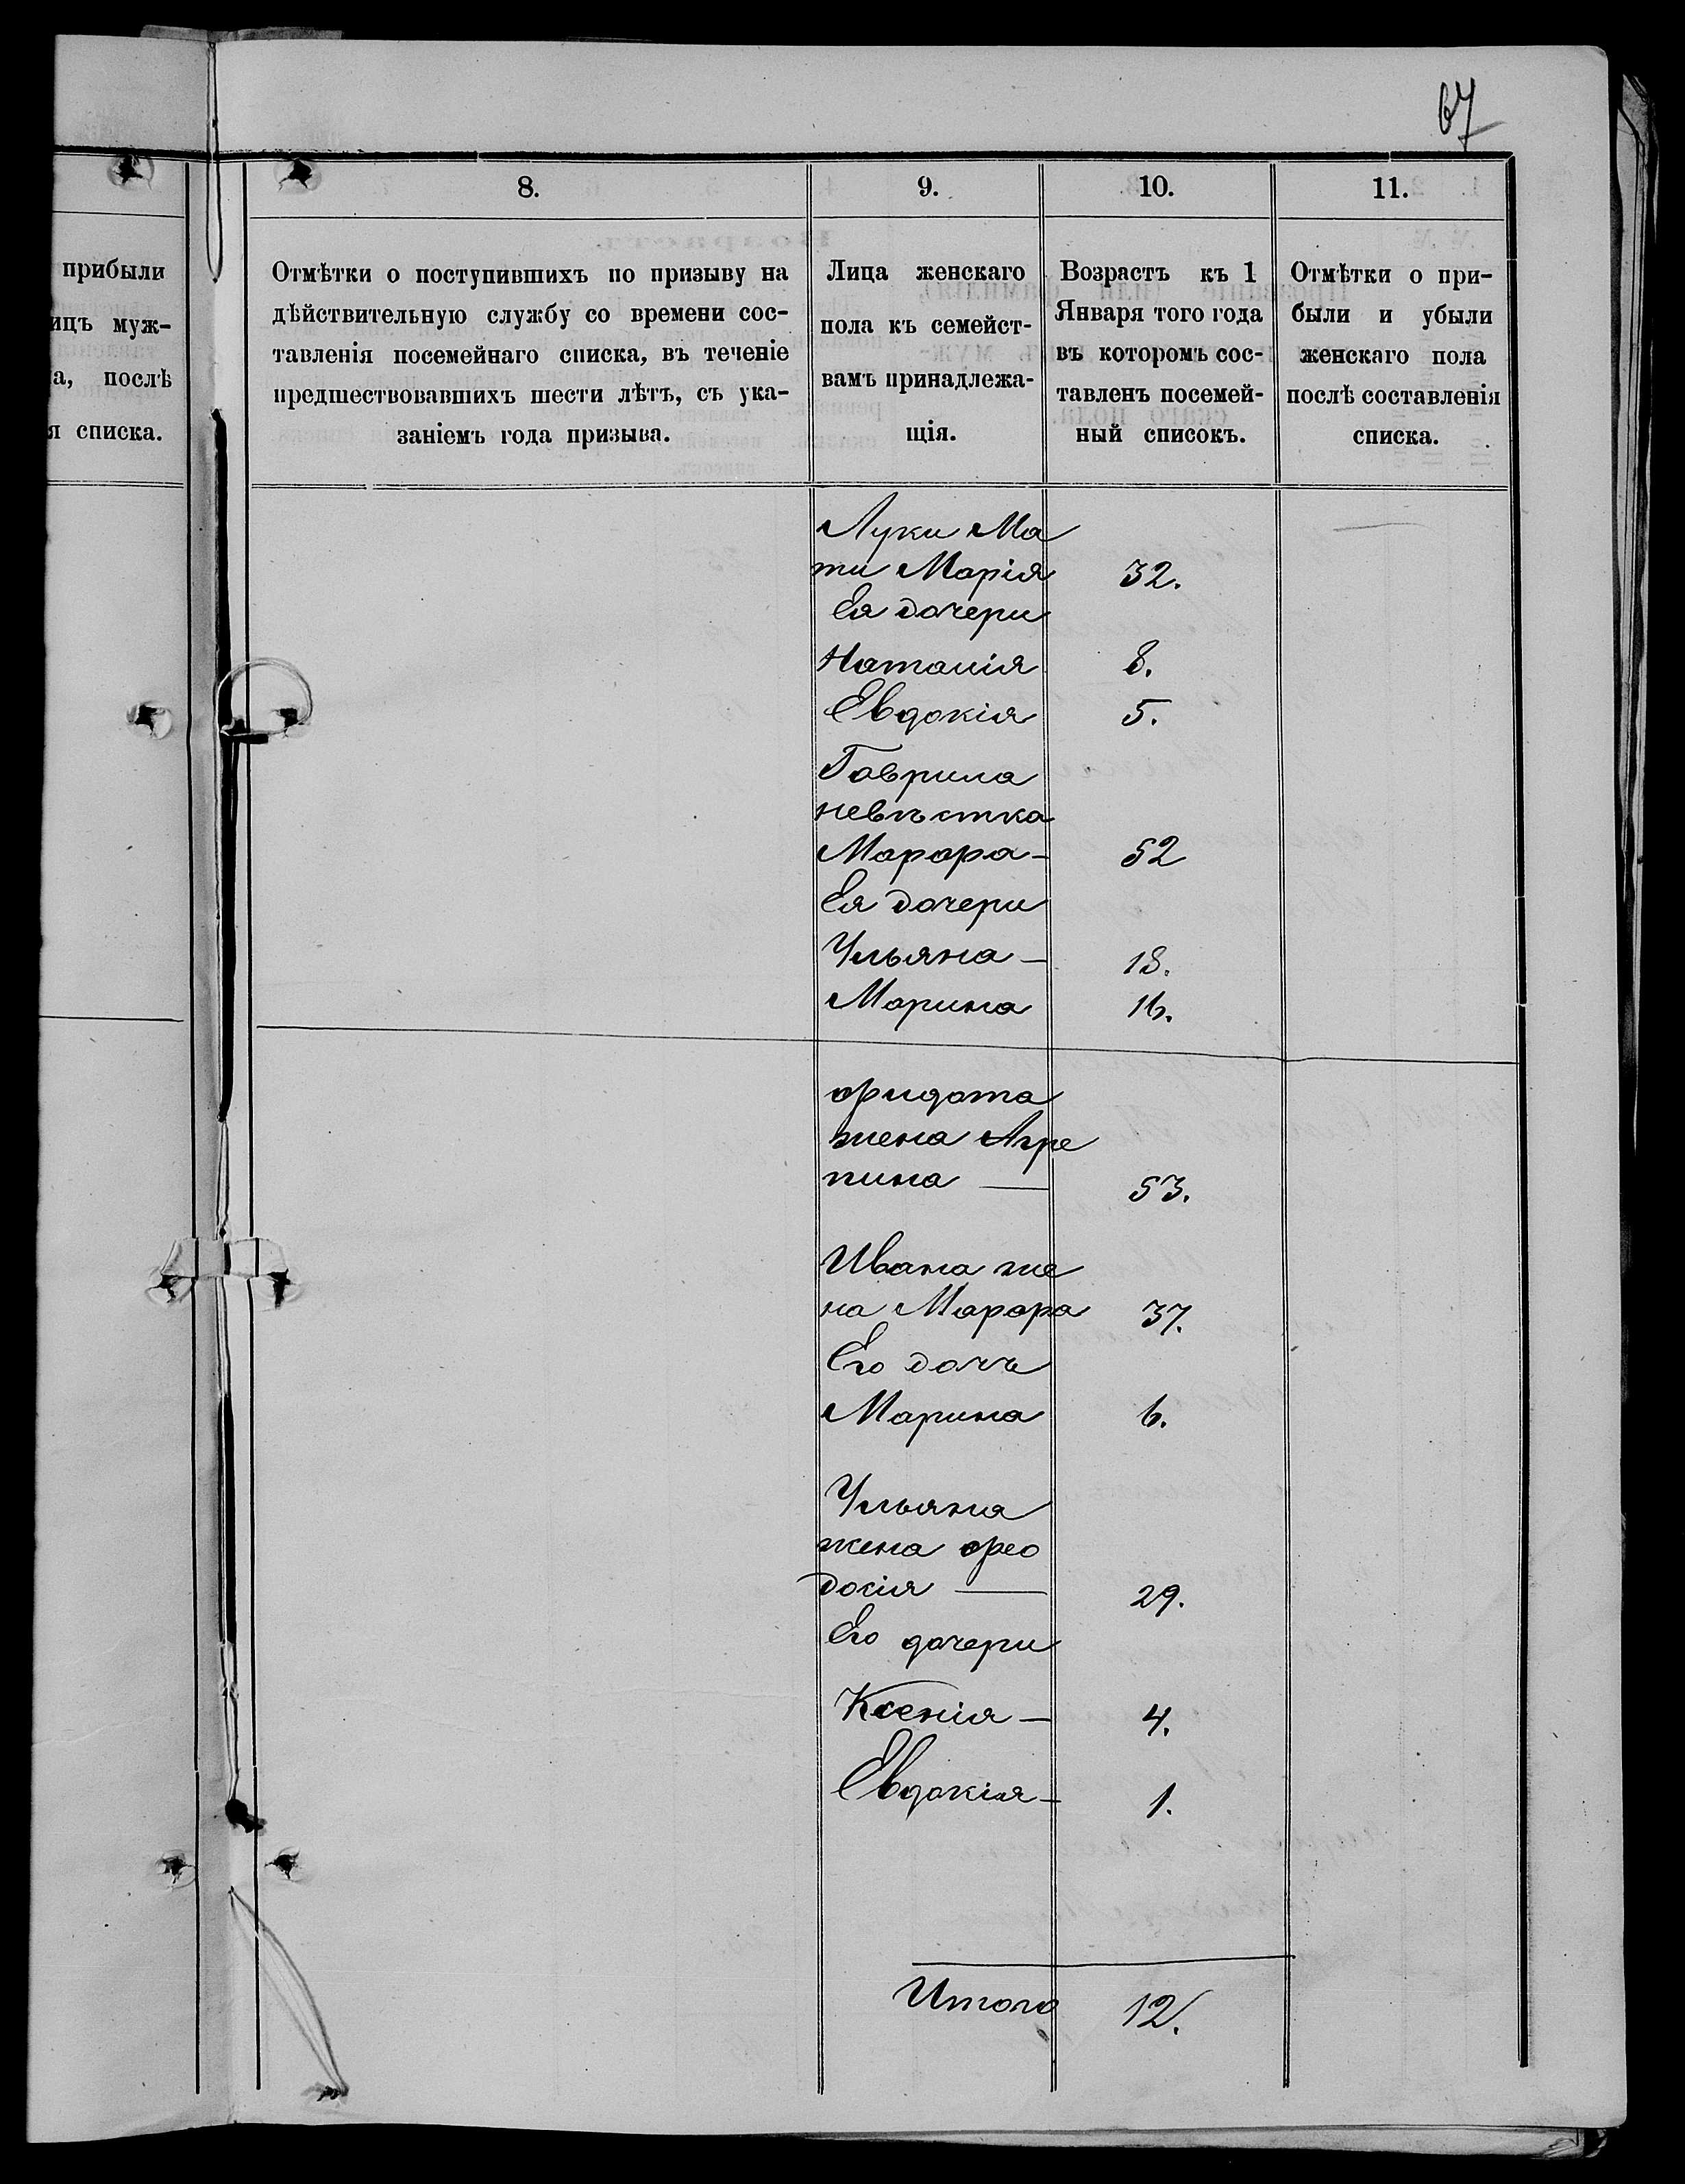 67
8.
9.
10.
11.
прибыли
ицъ муж-
а, послѣ
я списка.
Отмѣтки о поступившихъ по призыву на
дѣйствительную службу со времени сос-
тавленія посемейнаго списка, въ теченіе
предшествовавшихъ шести лѣтъ, съ ука-
заніемъ года призыва.
Лица женскаго
пола къ семейст-
вамъ принадлежа-
щія.
Возрастъ къ 1
Января того года
въ которомъ сос-
тавленъ посемей-
ный списокъ.
Отмѣтки о при-
были и убыли
женскаго пола
послѣ составленія
списка.
Луки Ма
ти Марія 32.
Ея дочери
Наталія 8.
Евдокія 5.
Гаврила
невѣстка
Марфа - 52
Ея дочери
Ульяна - 18.
Марина 16.
Фидота
жена Агре
пина — 53.
Ивана же
на Марфа 37.
Его дочь
Марина 6.
Ульяна
жена Фео
досія — 29.
Его дочери
Ксенія - 4.
Евдокія - 1.
Итого 12.